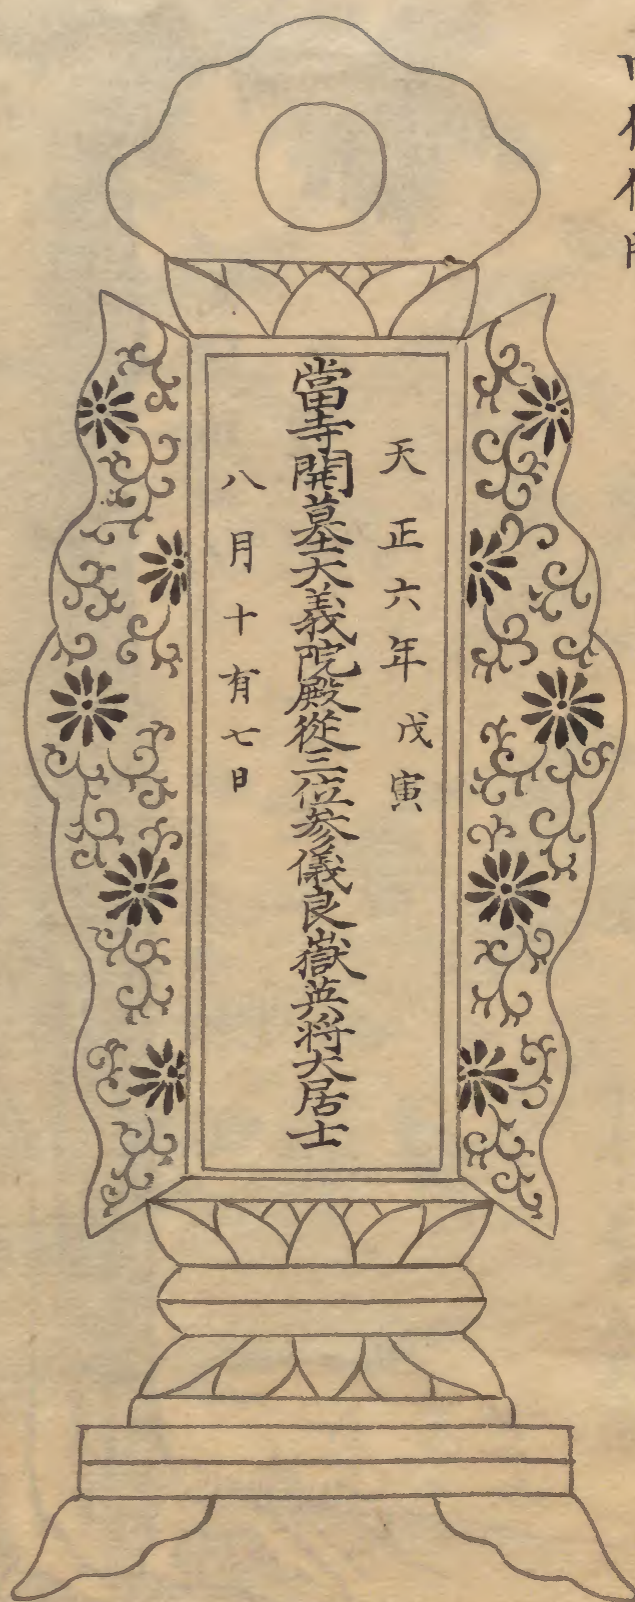 天正六年戊寅
當寺開墓大義院殿從三位參儀良嶽英将大居士
八月十有七日